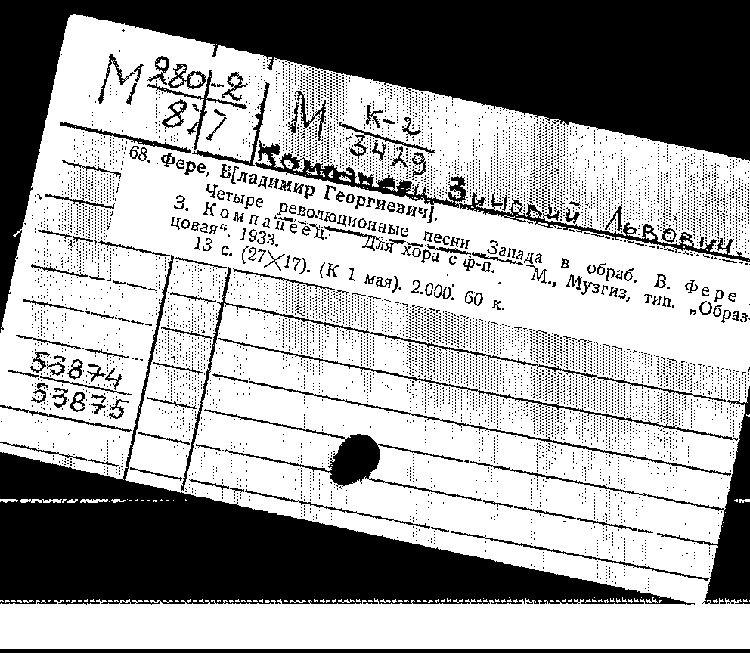 М 280-2
877
М К-2
3429
Компанеец Зиновий Львович.
68. Фере, В[ладимир Георгиевич].
Четыре революционные песни Запада в обраб. В. Фере
З. Компанеец. Для хора с ф-п. М., Музгиз, тип. „Образ-
цовая“. 1933.
13 с. (27×17). (К 1 мая). 2.000. 60 к.
53874
53875